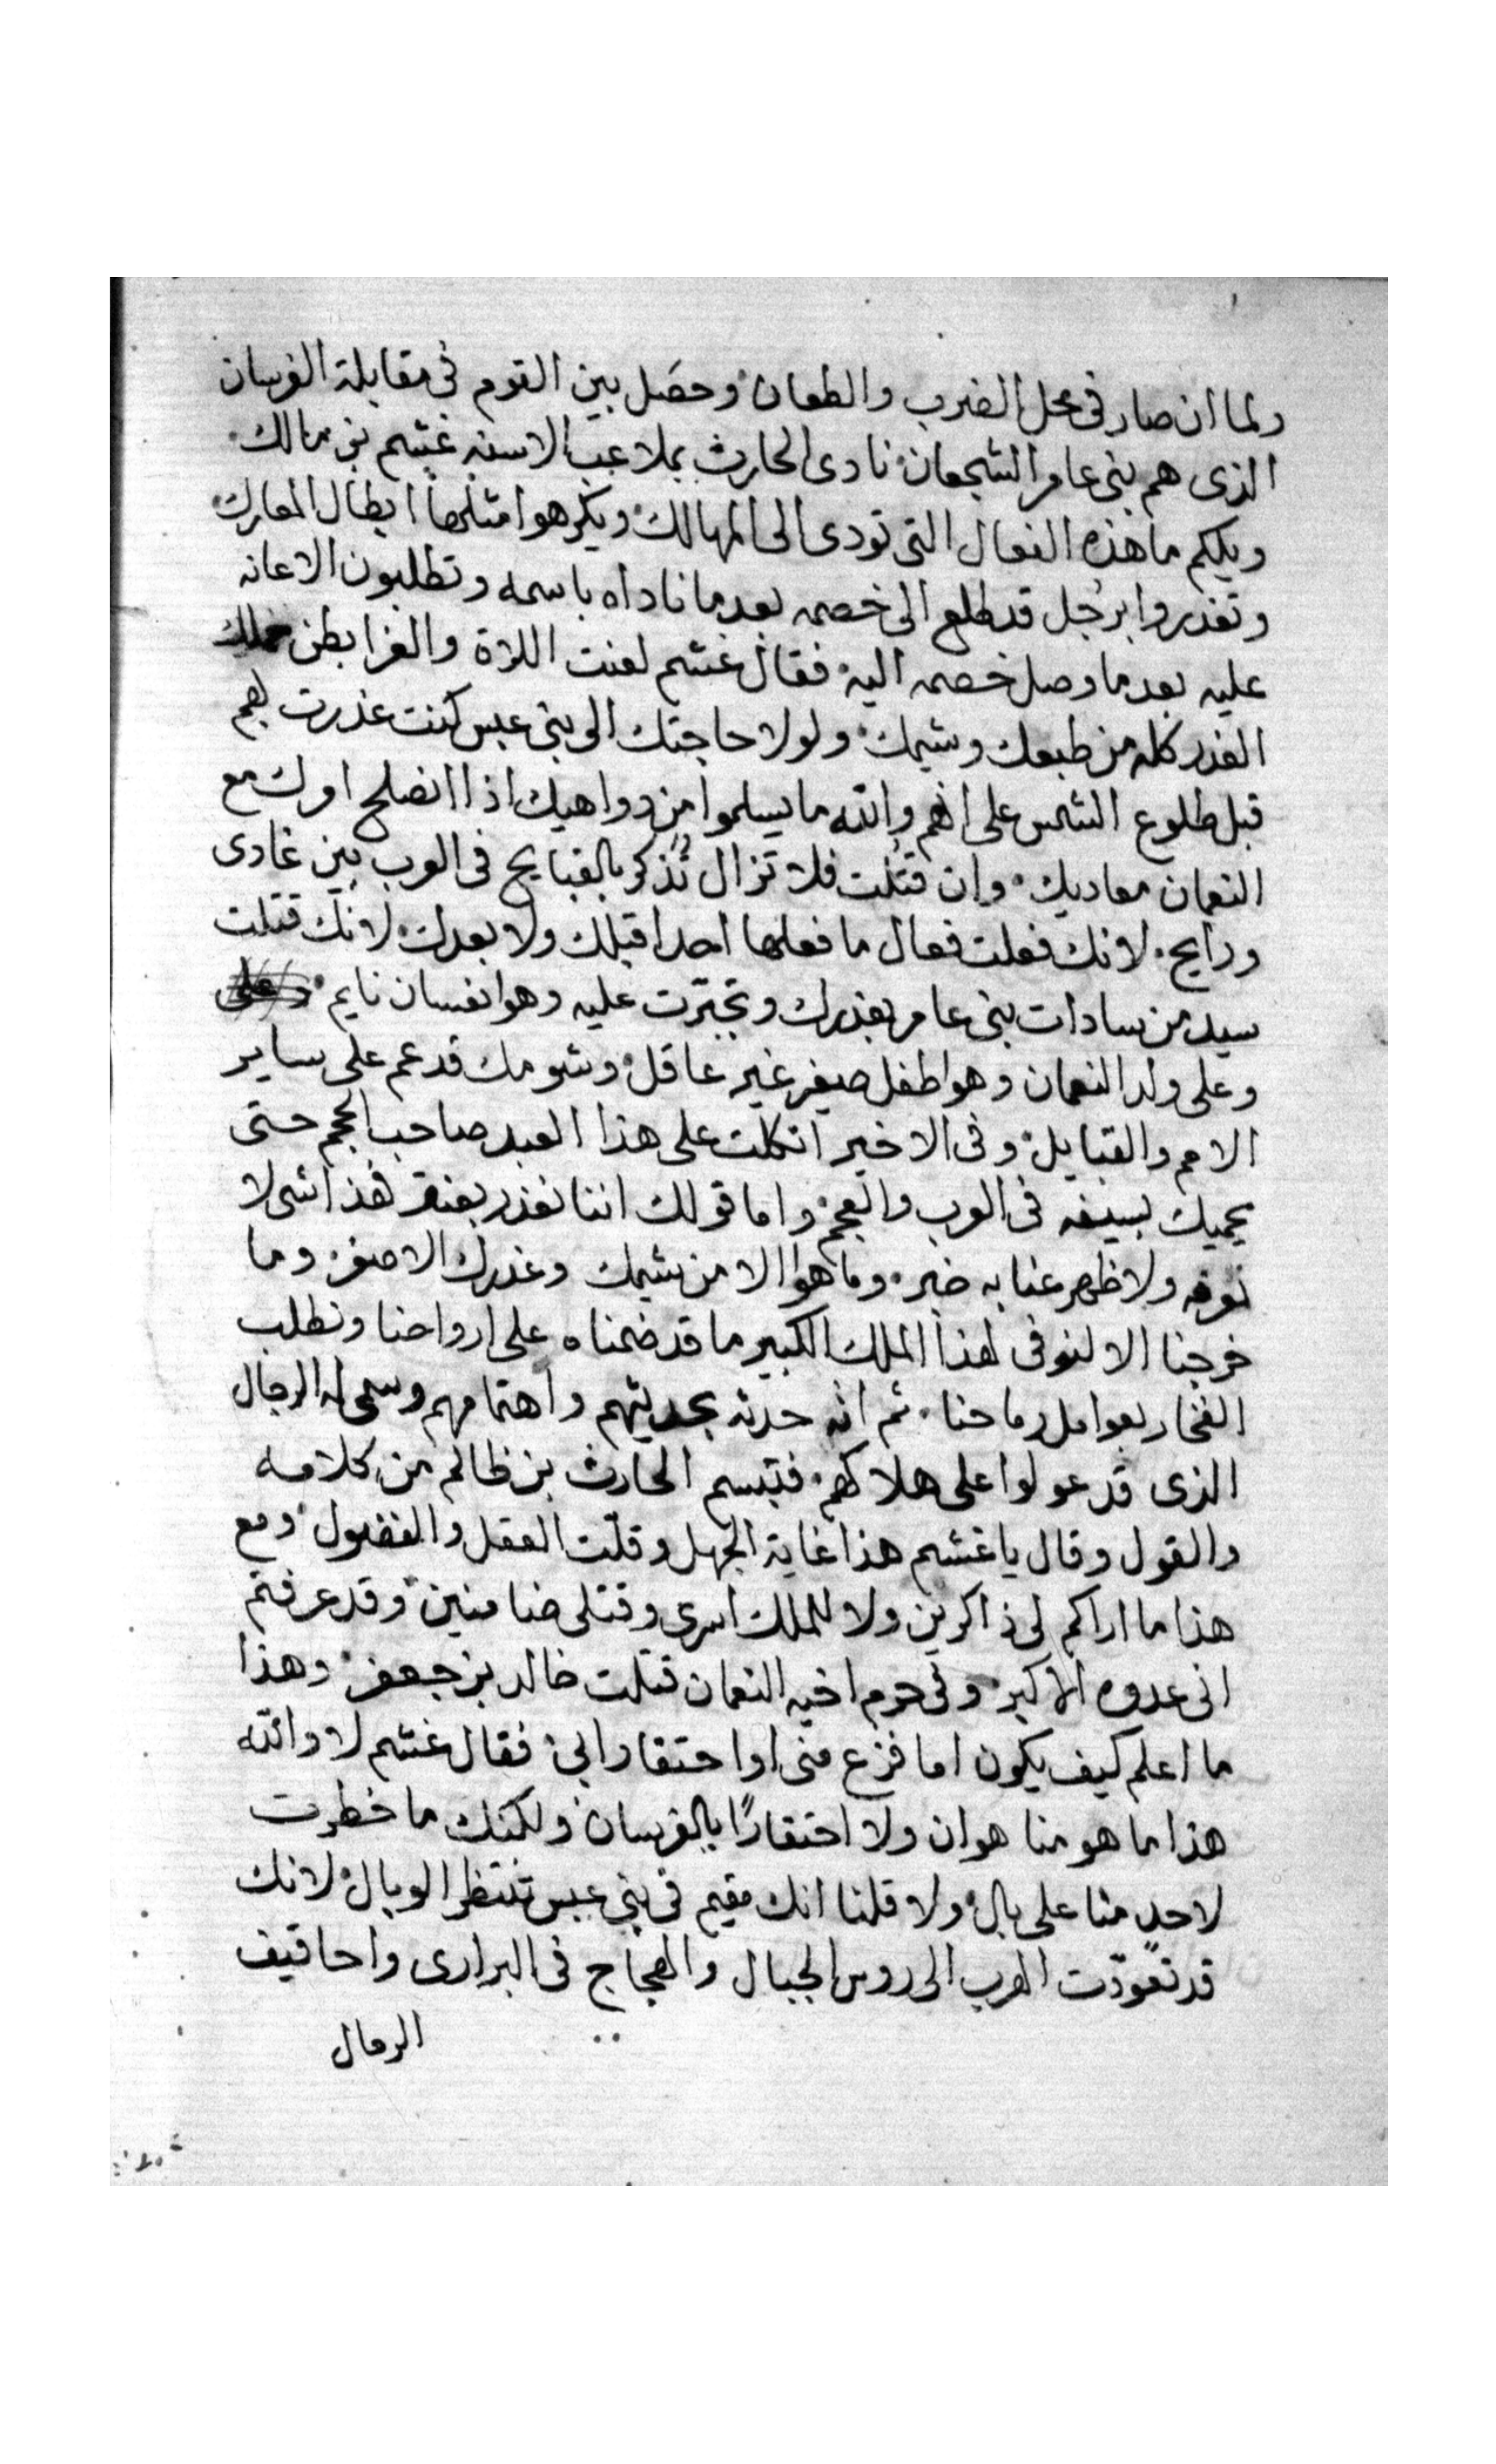 ولما ان صار فى محل الضرب والطعان وحصل بين القوم فى مقابلة الفرسان
الذى هم بنى عامر الشجعان نادى الحارث بملاعب الاسنه غشم بن مالك
ويلكم ما هذه الفعال التى تودى الى المهالك ويكرهوا مثلها ابطال المعارك
وتغدروا برجل قد طلع الى خصمه بعد ما ناداه باسمه وتطلبون الاعانه
عليه بعد ما وصل خصمه اليه فقال غشم لعنت اللاة والعزا بطن حملك
الغدر كله من طبعك وشيمك ولولا حاجتك الى بنى عبس كنت غدرت بهم
قبل طلوع الشمس على انهم والله ما يسلموا من دواهيك اذا انصلح امرك مع
النعمان معاديك وان قتلت فلا تزال تُذكر بالقبايح فى العرب بين غادى
ورايح لانك فعلت فعال ما فعلها احدا قبلك ولا بعدك لانك قتلت
سيد من سادات بنى عامر بغدرك وتجبرت عليه وهو انعسان نايم وعلى
وعلى ولد النعمان وهوا طفل صيغر غير عاقل وشومك قد عم على ساير
الامم والقبايل وفى الاخير اتكلت على هذا العبد صاحب الحجم حتى
يحميك بسيفه فى العرب والعجم واما قولك اننا نغدر بعنتر فهذا شى لا
نعرفه ولا ظهر عنا به خبر وما هوا الا من شيمك وغدرك الاصفر وما
خرجنا الا لنوفى لهذا الملك الكبير ما قد ضمناه على ارواحنا ونطلب
الفخار بعوامل رماحنا ثم انه حدثه بحديثهم واهتمامهم وسمى له الرجال
الذى قد عولوا على هلاكهم فتبسم الحارث بن ظالم من كلامه
والقول وقال يا غشم هذا غاية الجهل وقلّت العقل والفضول ومع
هذا ما اراكم لى ذاكرين ولا للملك اسرى وقتلى ضامنين وقد عرفتم
انى عدوه الاكبر وفى حرم اخيه النعمان قتلت خالد بن جعفر وهذا
ما اعلم كيف يكون اما فزع منى اوا حتقارا بى فقال غشم لا والله
هذا ما هو منا هوان ولا احتقارًا بالفرسان ولكنك ما خطرت
لاحدٍ منا على بال ولا قلنا انك مقيم فى بنى عبس تنتظر الوبال لانك
قد تعوّدت الهرب الى روس الجبال والعجاج فى البرارى واحاقيف
الرمال